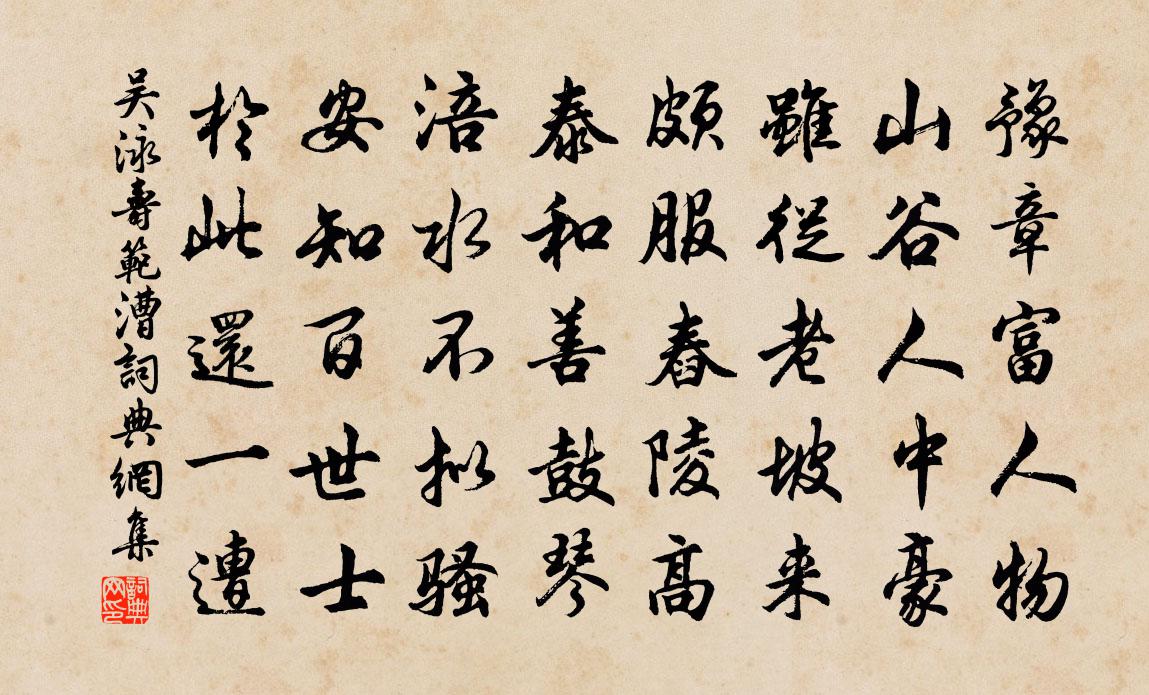 豫章富人物
山谷人中豪
雖從老坡来
頗服舂陵高
泰和善鼓琴
涪水不拟騷
安知百世士
於此還一遭
吴泳壽範漕詞典網集
詞典网印